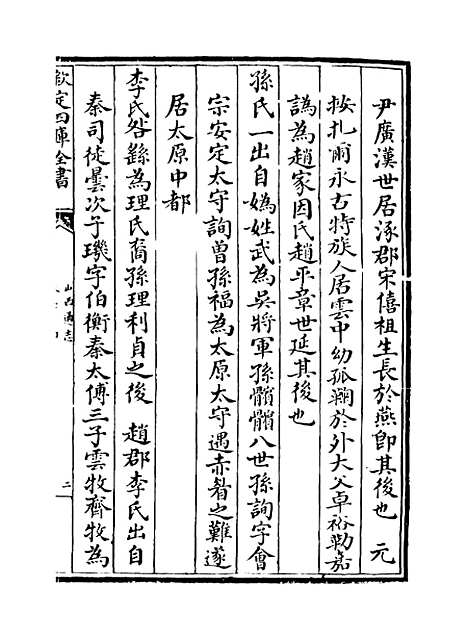 尹廣漢世居涿郡宋僖祖生長於燕即其後也　元
按扎爾永古特族人居雲中幼孤鞠於外大父卓裕勒嘉
譌為趙家因氏趙平章世延其後也
孫氏一出自媯姓武為吳將軍孫髕髕八世孫詢字會
宗安定太守詢曾孫福為太原太守遇赤眉之難遂
居太原中都
李氏咎繇為理氏裔孫理利貞之後　趙郡李氏出自
秦司徒曇次子璣字伯衡秦太傅三子雲牧齊牧為
欽定四庫全書
山西通志
二